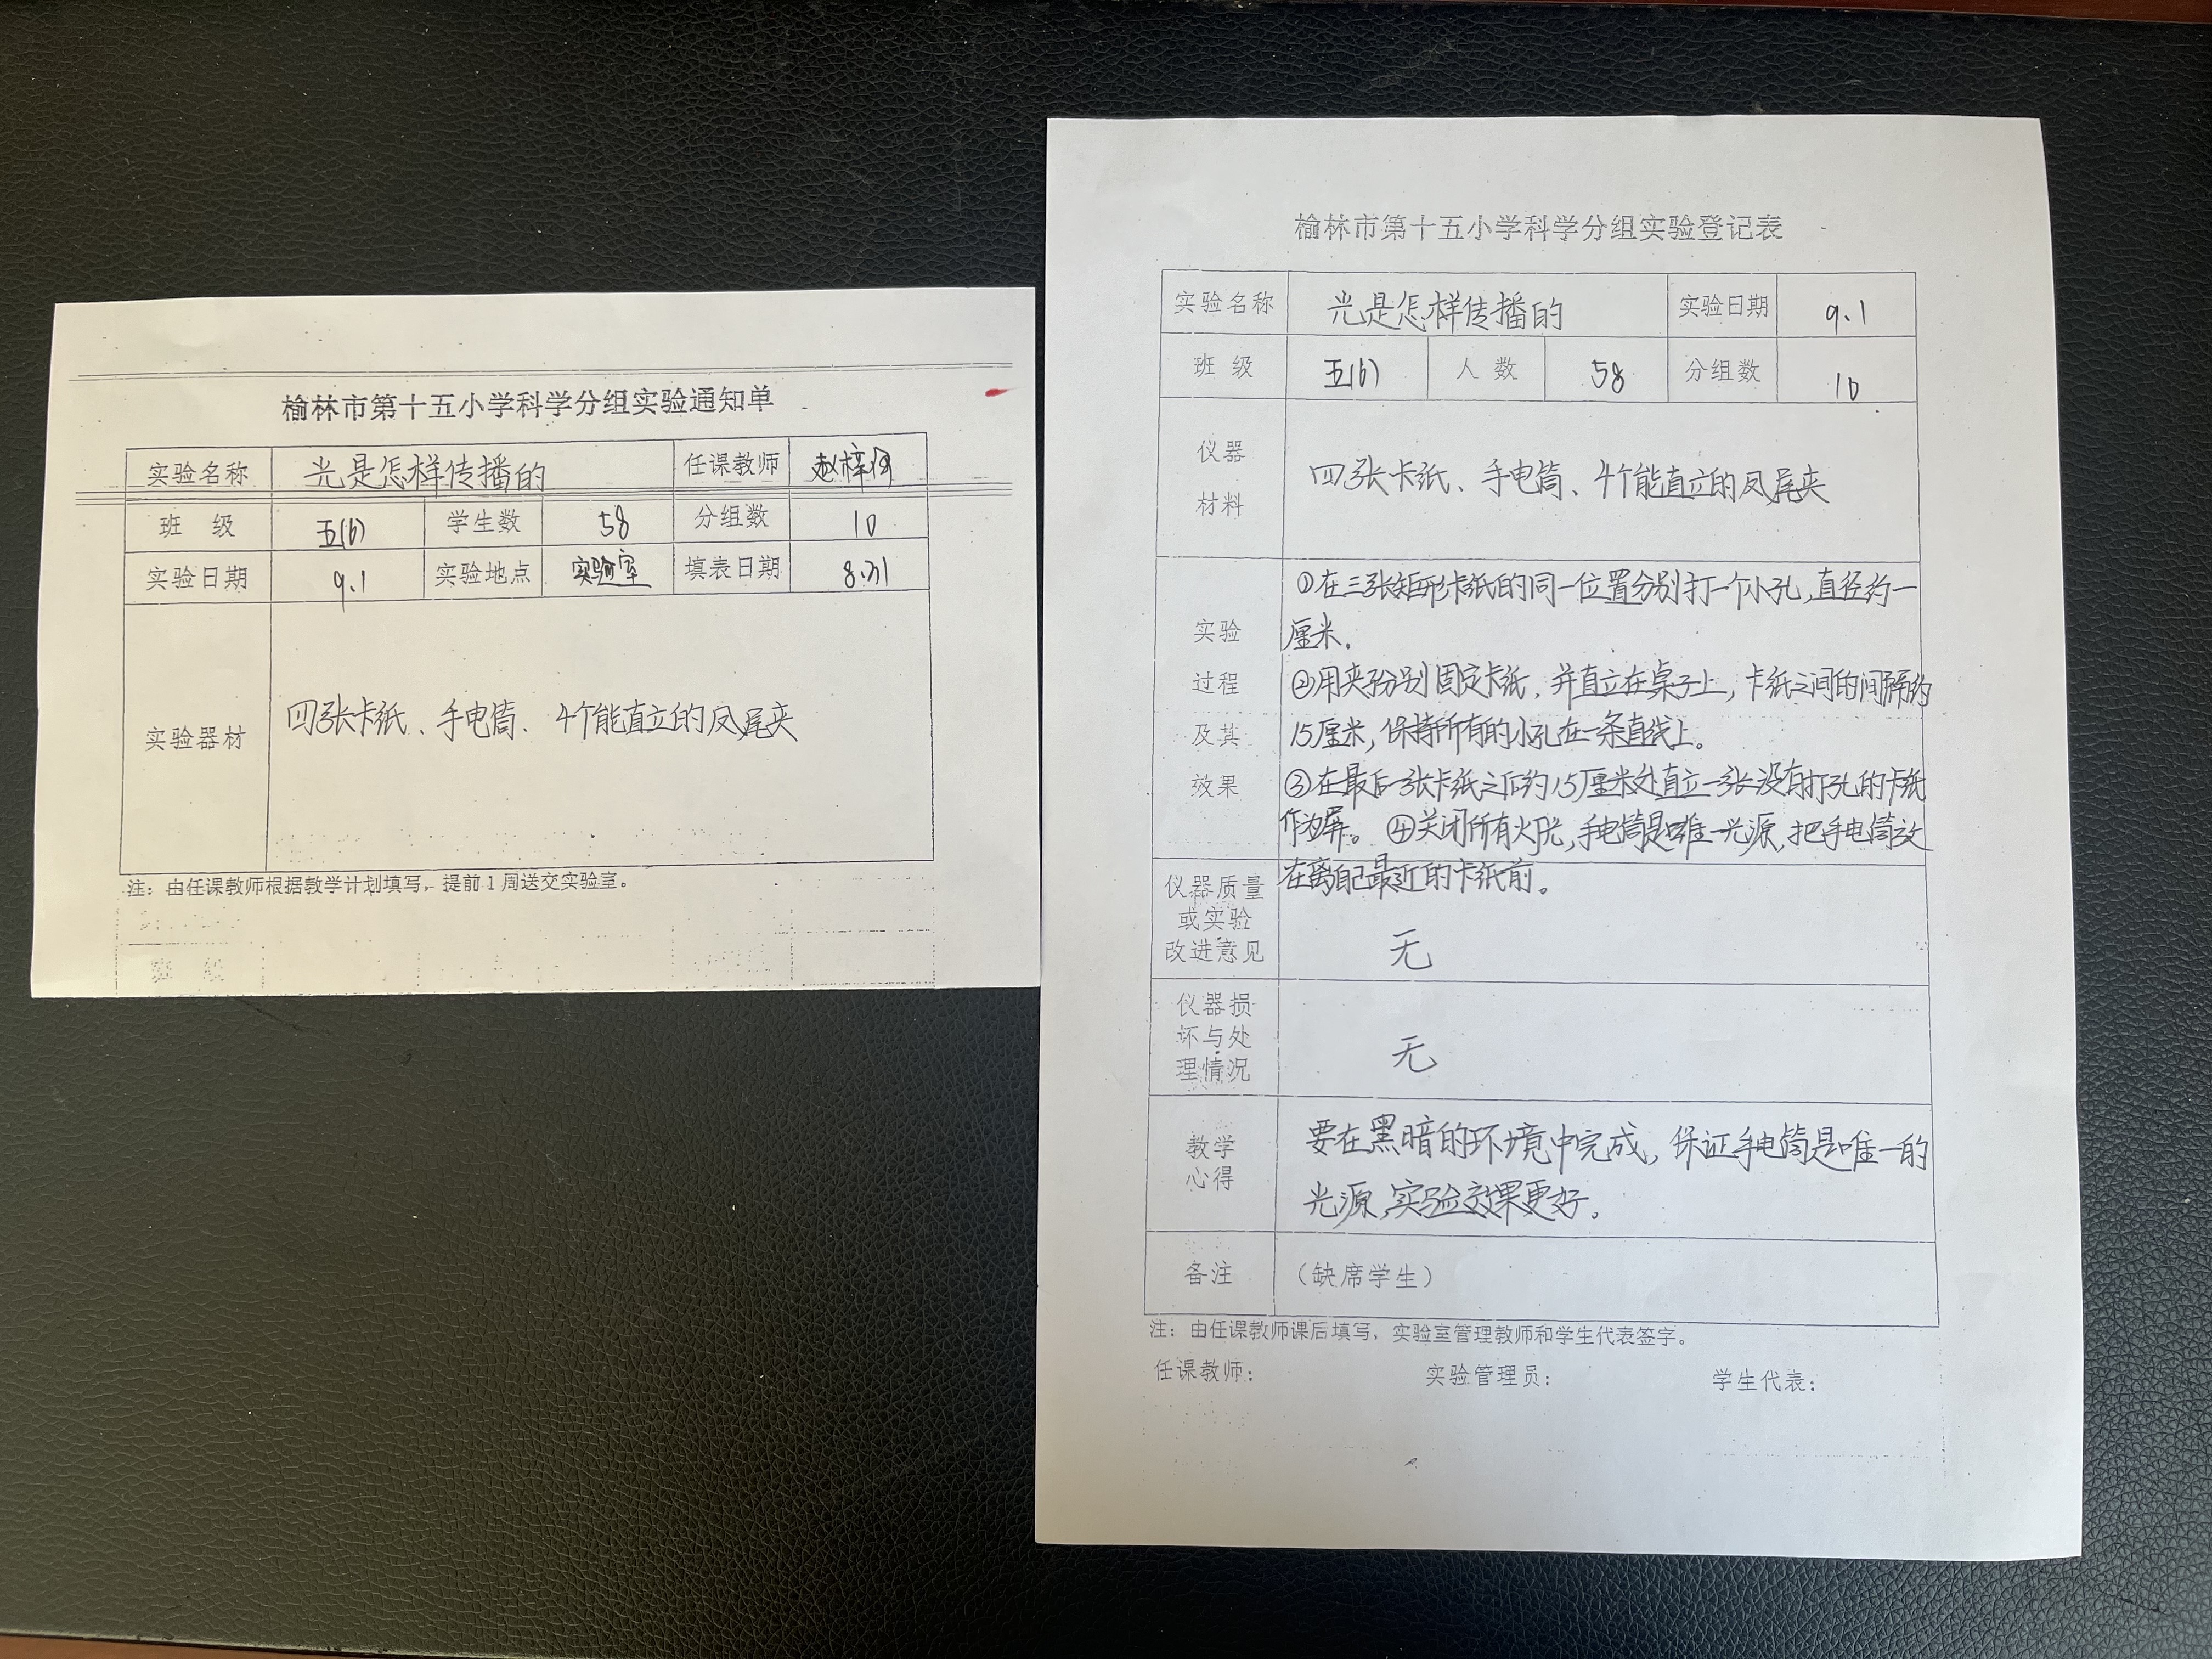 榆林市第十五小学科学分组实验通知单
实验名称 光是怎样传播的 任课教师
班 级 五(6) 学生数 58 分组数 10
实验日期 9.1 实验地点 实验室 填表日期 8.31
实验器材 四张卡纸、手电筒、4个能直立的凤尾夹
注：由任课教师根据教学计划填写，提前1周送交实验室。
班 级
榆林市第十五小学科学分组实验登记表
实验名称 光是怎样传播的 实验日期 9.1
班 级 五(6) 人 数 58 分组数 10
仪器
材料
四张卡纸、手电筒、4个能直立的凤尾夹
实验
过程
及其
效果
①在三张矩形卡纸的同一位置分别打一个小孔,直径约一
厘米.
②用夹子分别固定卡纸,并直立在桌子上,卡纸之间的间隔约
15厘米,保持所有的小孔在一条直线上。
③在最后一张卡纸之后约15厘米处直立一张没有打孔的卡纸
作为屏。④关闭所有火光,手电筒是唯一光源,把手电筒放
在离自己最近的卡纸前。
仪器质量
或实验
改进意见
无
仪器损
坏与处
理情况
无
教学
心得
要在黑暗的环境中完成,保证手电筒是唯一的
光源,实验效果更好。
备注 （缺席学生）
注：由任课教师课后填写，实验室管理教师和学生代表签字。
任课教师： 实验管理员： 学生代表：